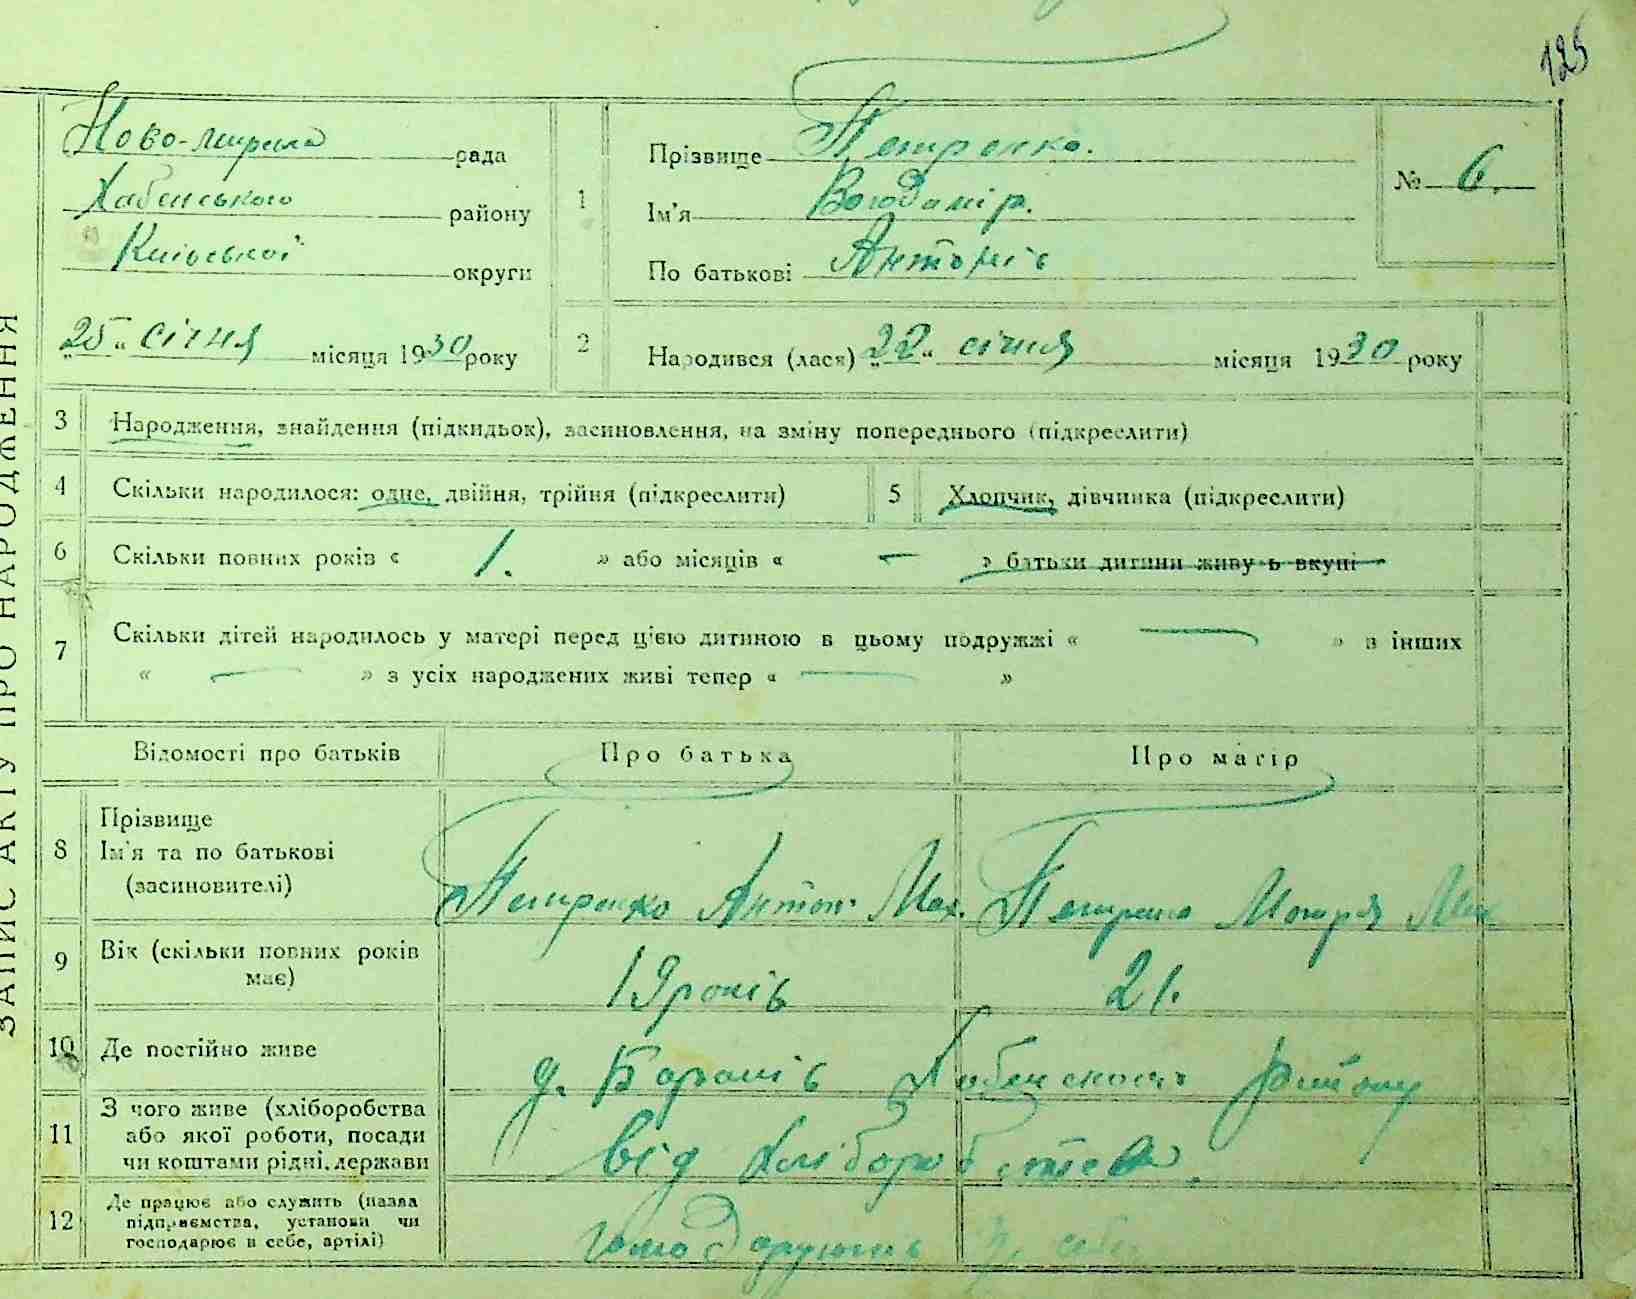 125
Ново-Мирська рада
Хабенського району
Київської округи
"25" січня місяця 1930 року
ЗАПИС АКТУ ПРО НАРОДЖЕННЯ
1 Прізвище Петренко.
Ім'я Володимір.
По батькові Антонів
№ 6.
2 Народився (лася) "22" січня місяця 1930 року
3 Народження, знайдення (підкидьок), засиновлення, на зміну попереднього (підкреслити)
4 Скільки народилося: одне, двійня, трійня (підкреслити) 5 Хлопчик, дівчинка (підкреслити)
6 Скільки повних років « 1. » або місяців « — » батьки дитини живуть вкупі
7 Скільки дітей народилось у матері перед цією дитиною в цьому подружжі « — » в інших
« — » з усіх народжених живі тепер « — »
Відомості про батьків Про батька Про матір
8 Прізвище
Ім'я та по батькові
(засиновителі)
Петренко Антон Мех. Петренко Мотря
9 Вік (скільки повних років
має)
19 років 21.
10 Де постійно живе д. Хабенского району
11 З чого живе (хліборобства
або якої роботи, посади
чи коштами рідні, держави
від хліборобства.
12 Де працює або служить (назва
підприємства, установи чи
господарює в себе, артілі)